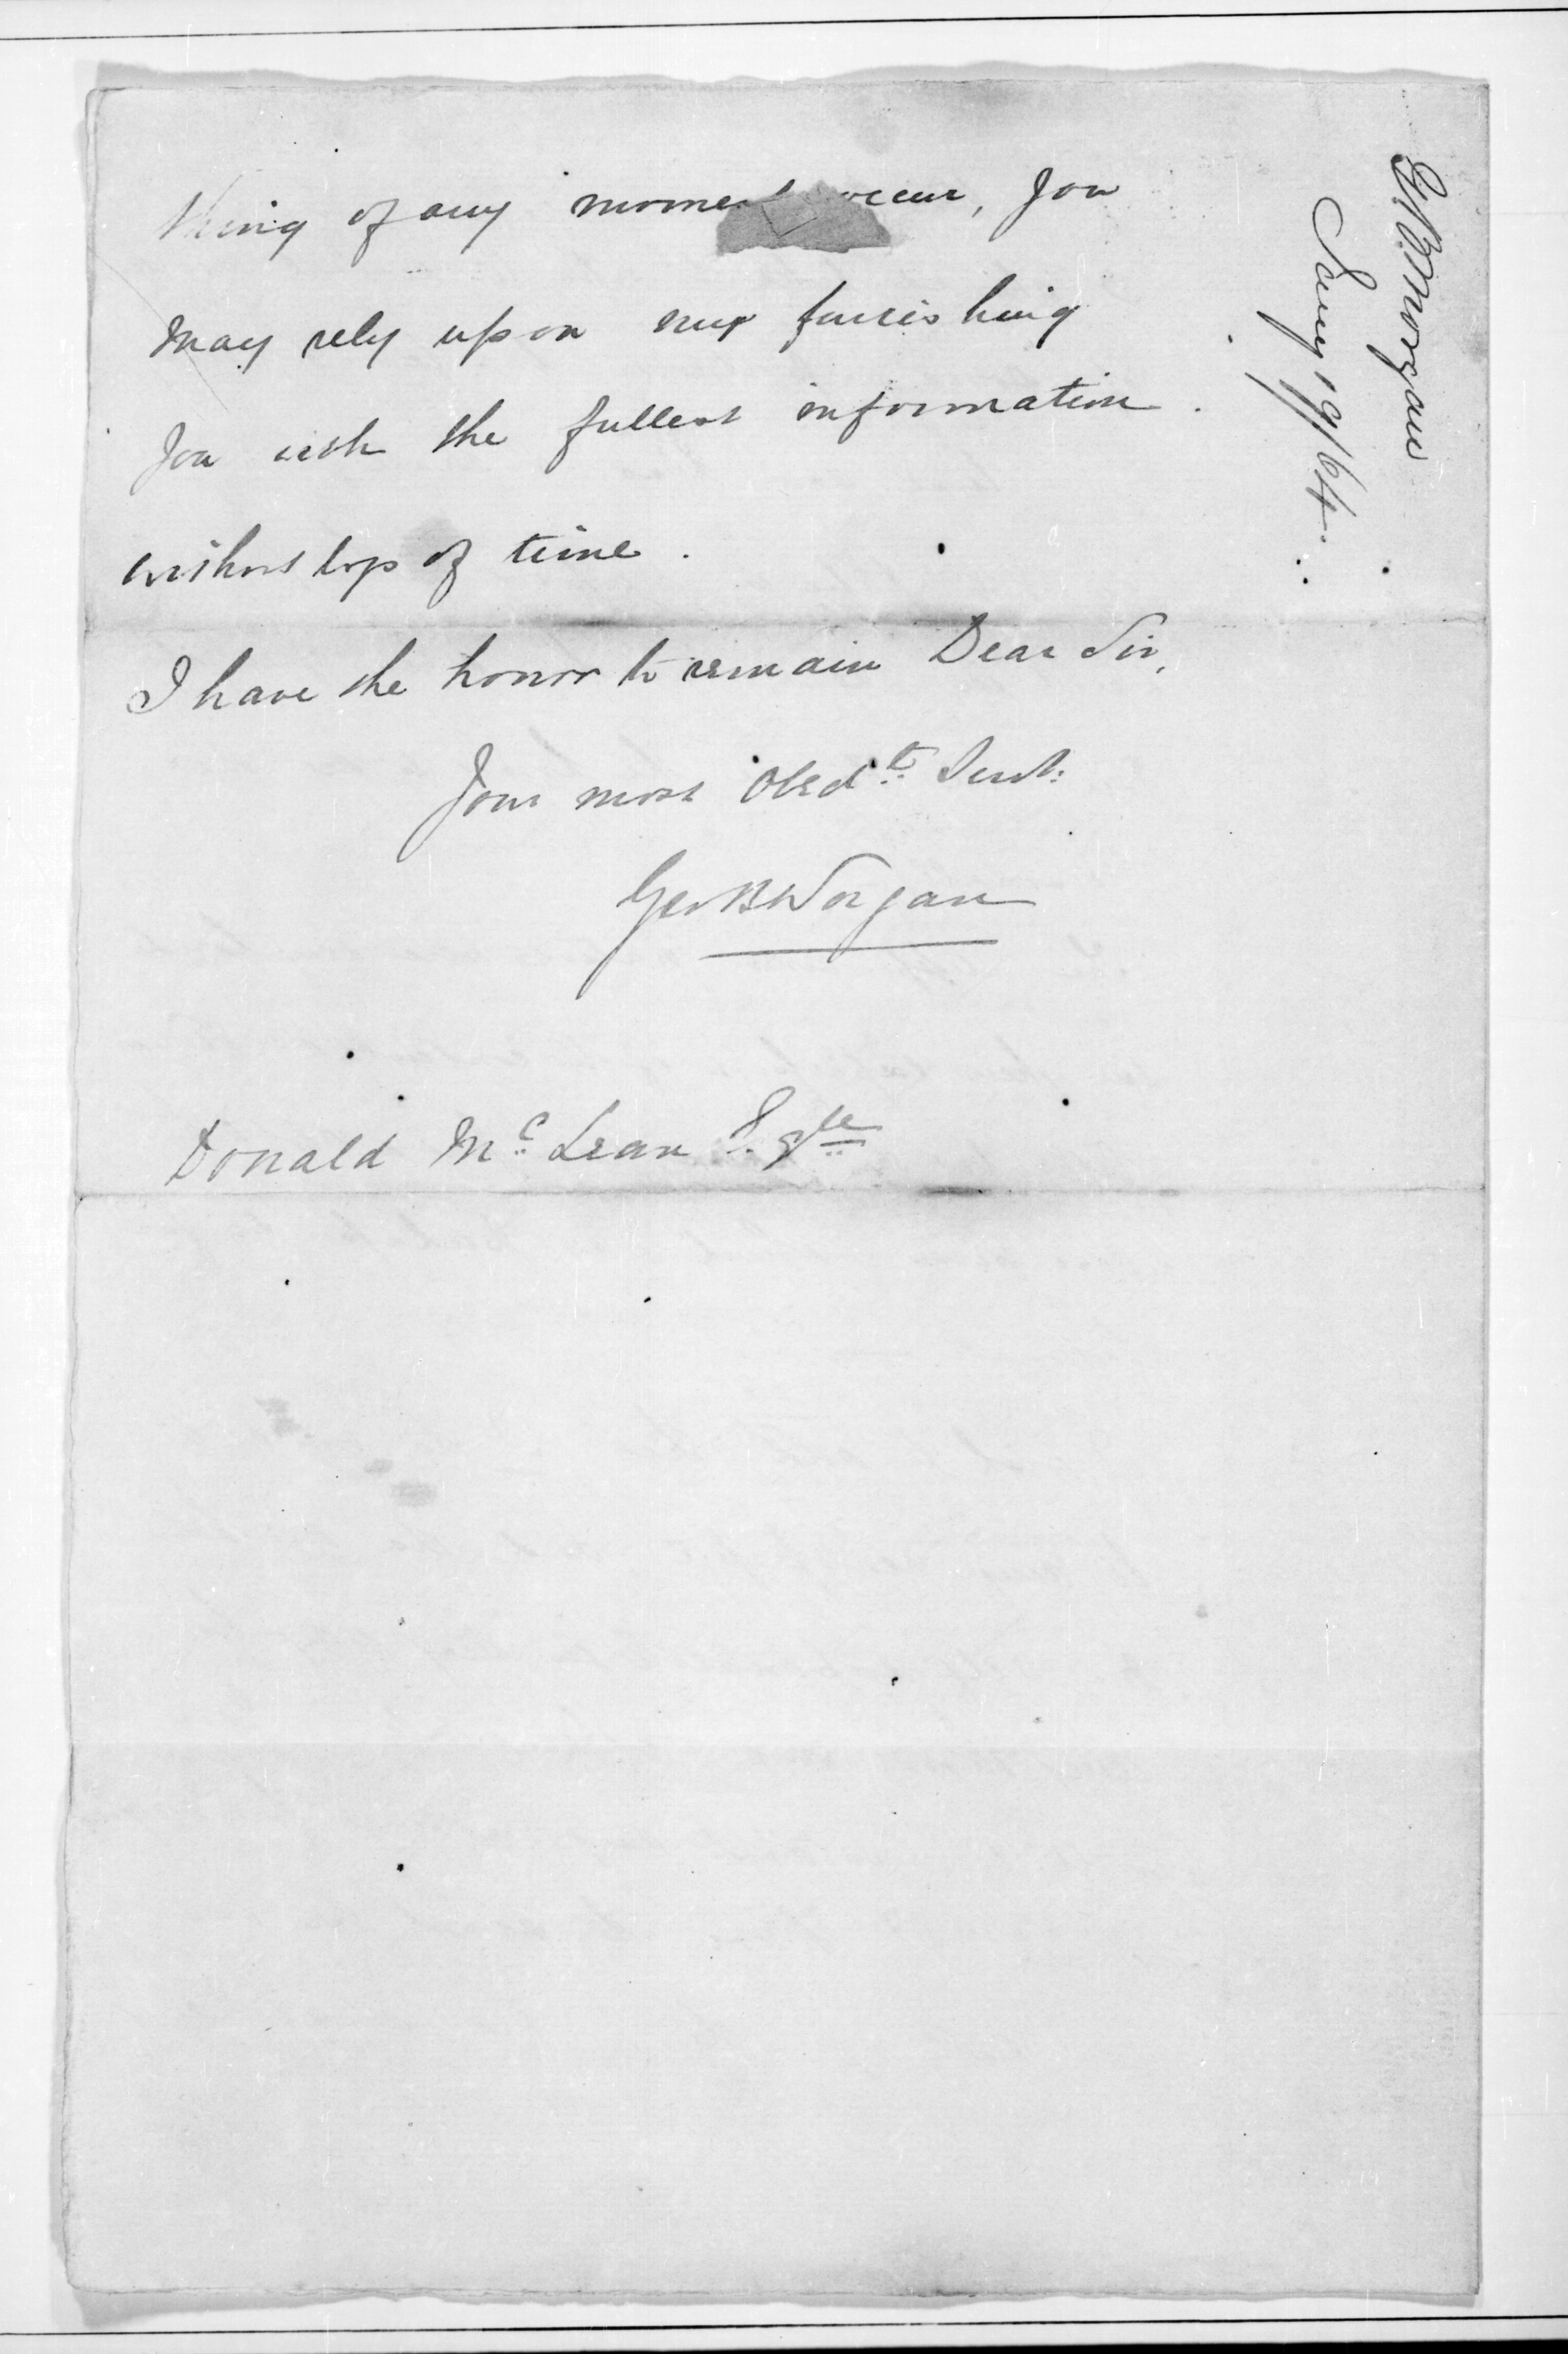 thing of any moment occur, you
may rely upon my furnishing
you with the fullest information
without loss of time.
I have the honor to remain Dear Sir,
Your most Obedt. Servt:
Geo B Worgan
Donald McLean Esqre
G B Worgan
Jany 19/64.